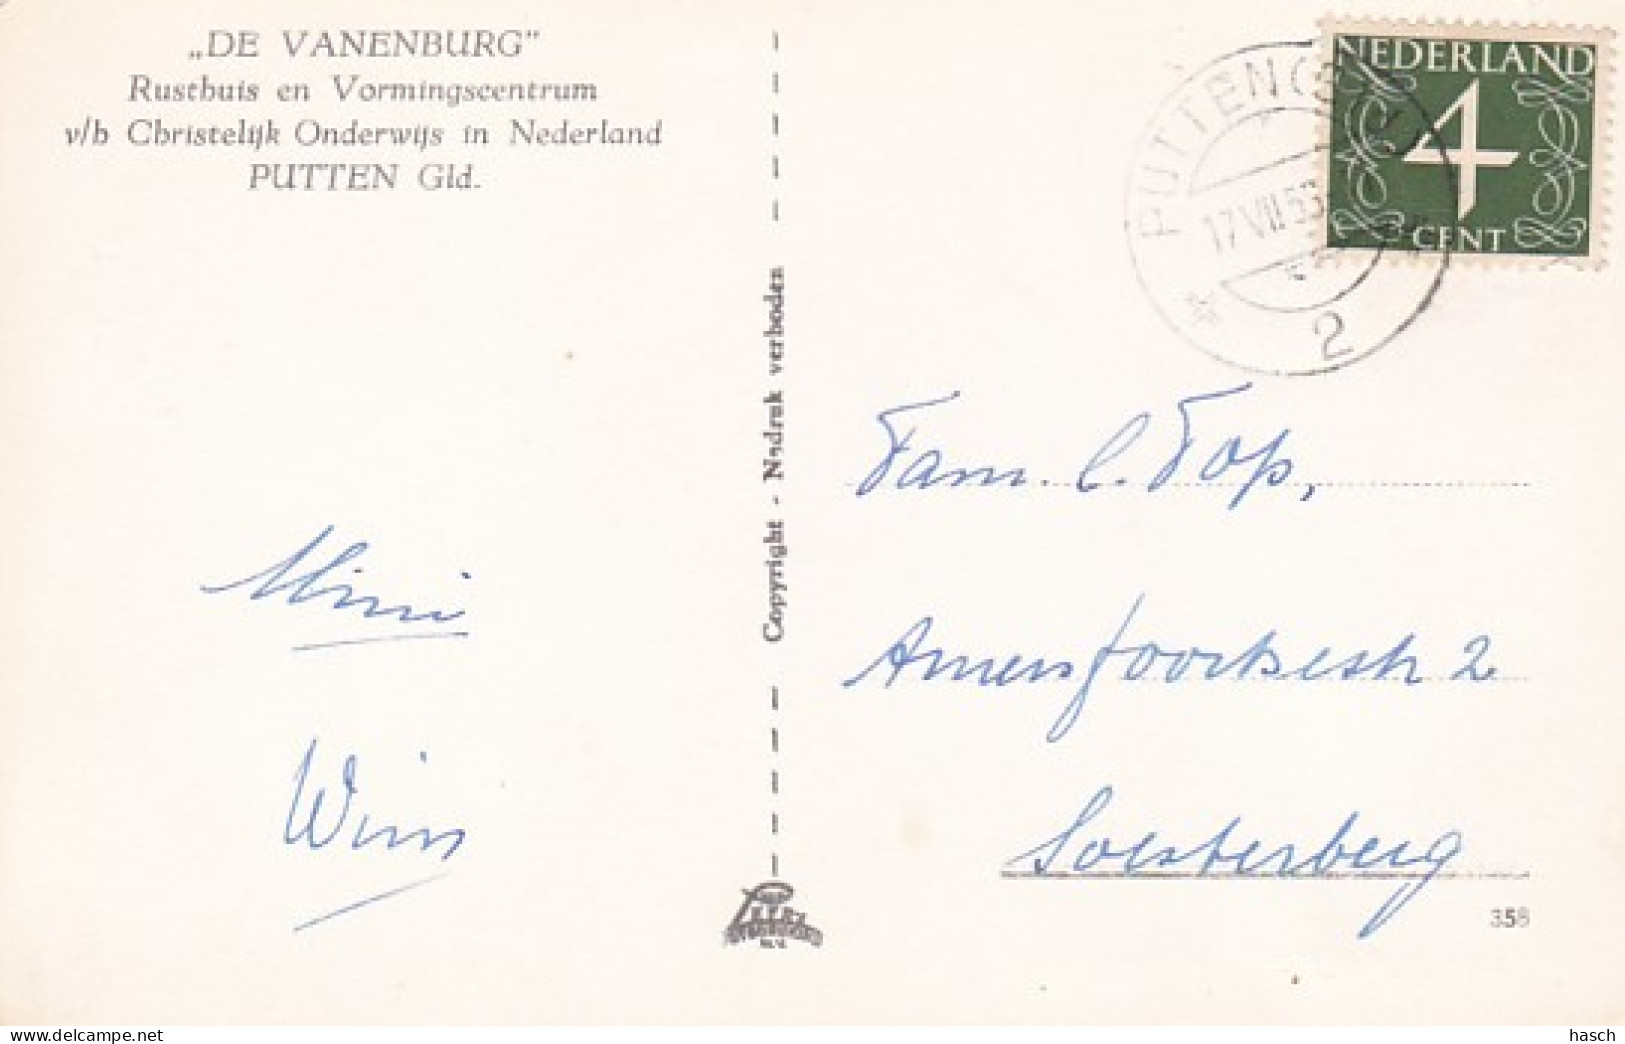 „DE VANENBURG”
Rusthuis en Vormingscentrum
v/h Christelijk Onderwijs in Nederland
PUTTEN Gld.
Mimi
Wim
Copyright - Nadruk verboden
PUTTEN
17 VII 53
2
NEDERLAND
4
CENT
Fam. C. Top,
Amersfoortsestr 2
Soesterberg
358
hasch